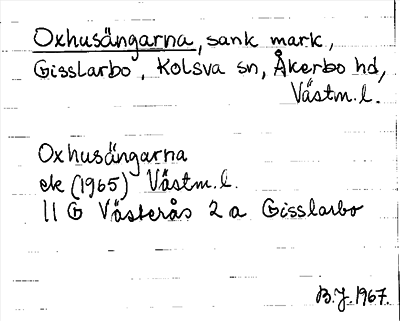 Oxhusängarna, sank mark,
Gisslarbo, Kolsva sn, Åkerbo hd,
Västm.l.
Oxhusängarna
ek (1965) Västm.l.
11 G Västerås 2 a Gisslarbo
B.J. 1967.